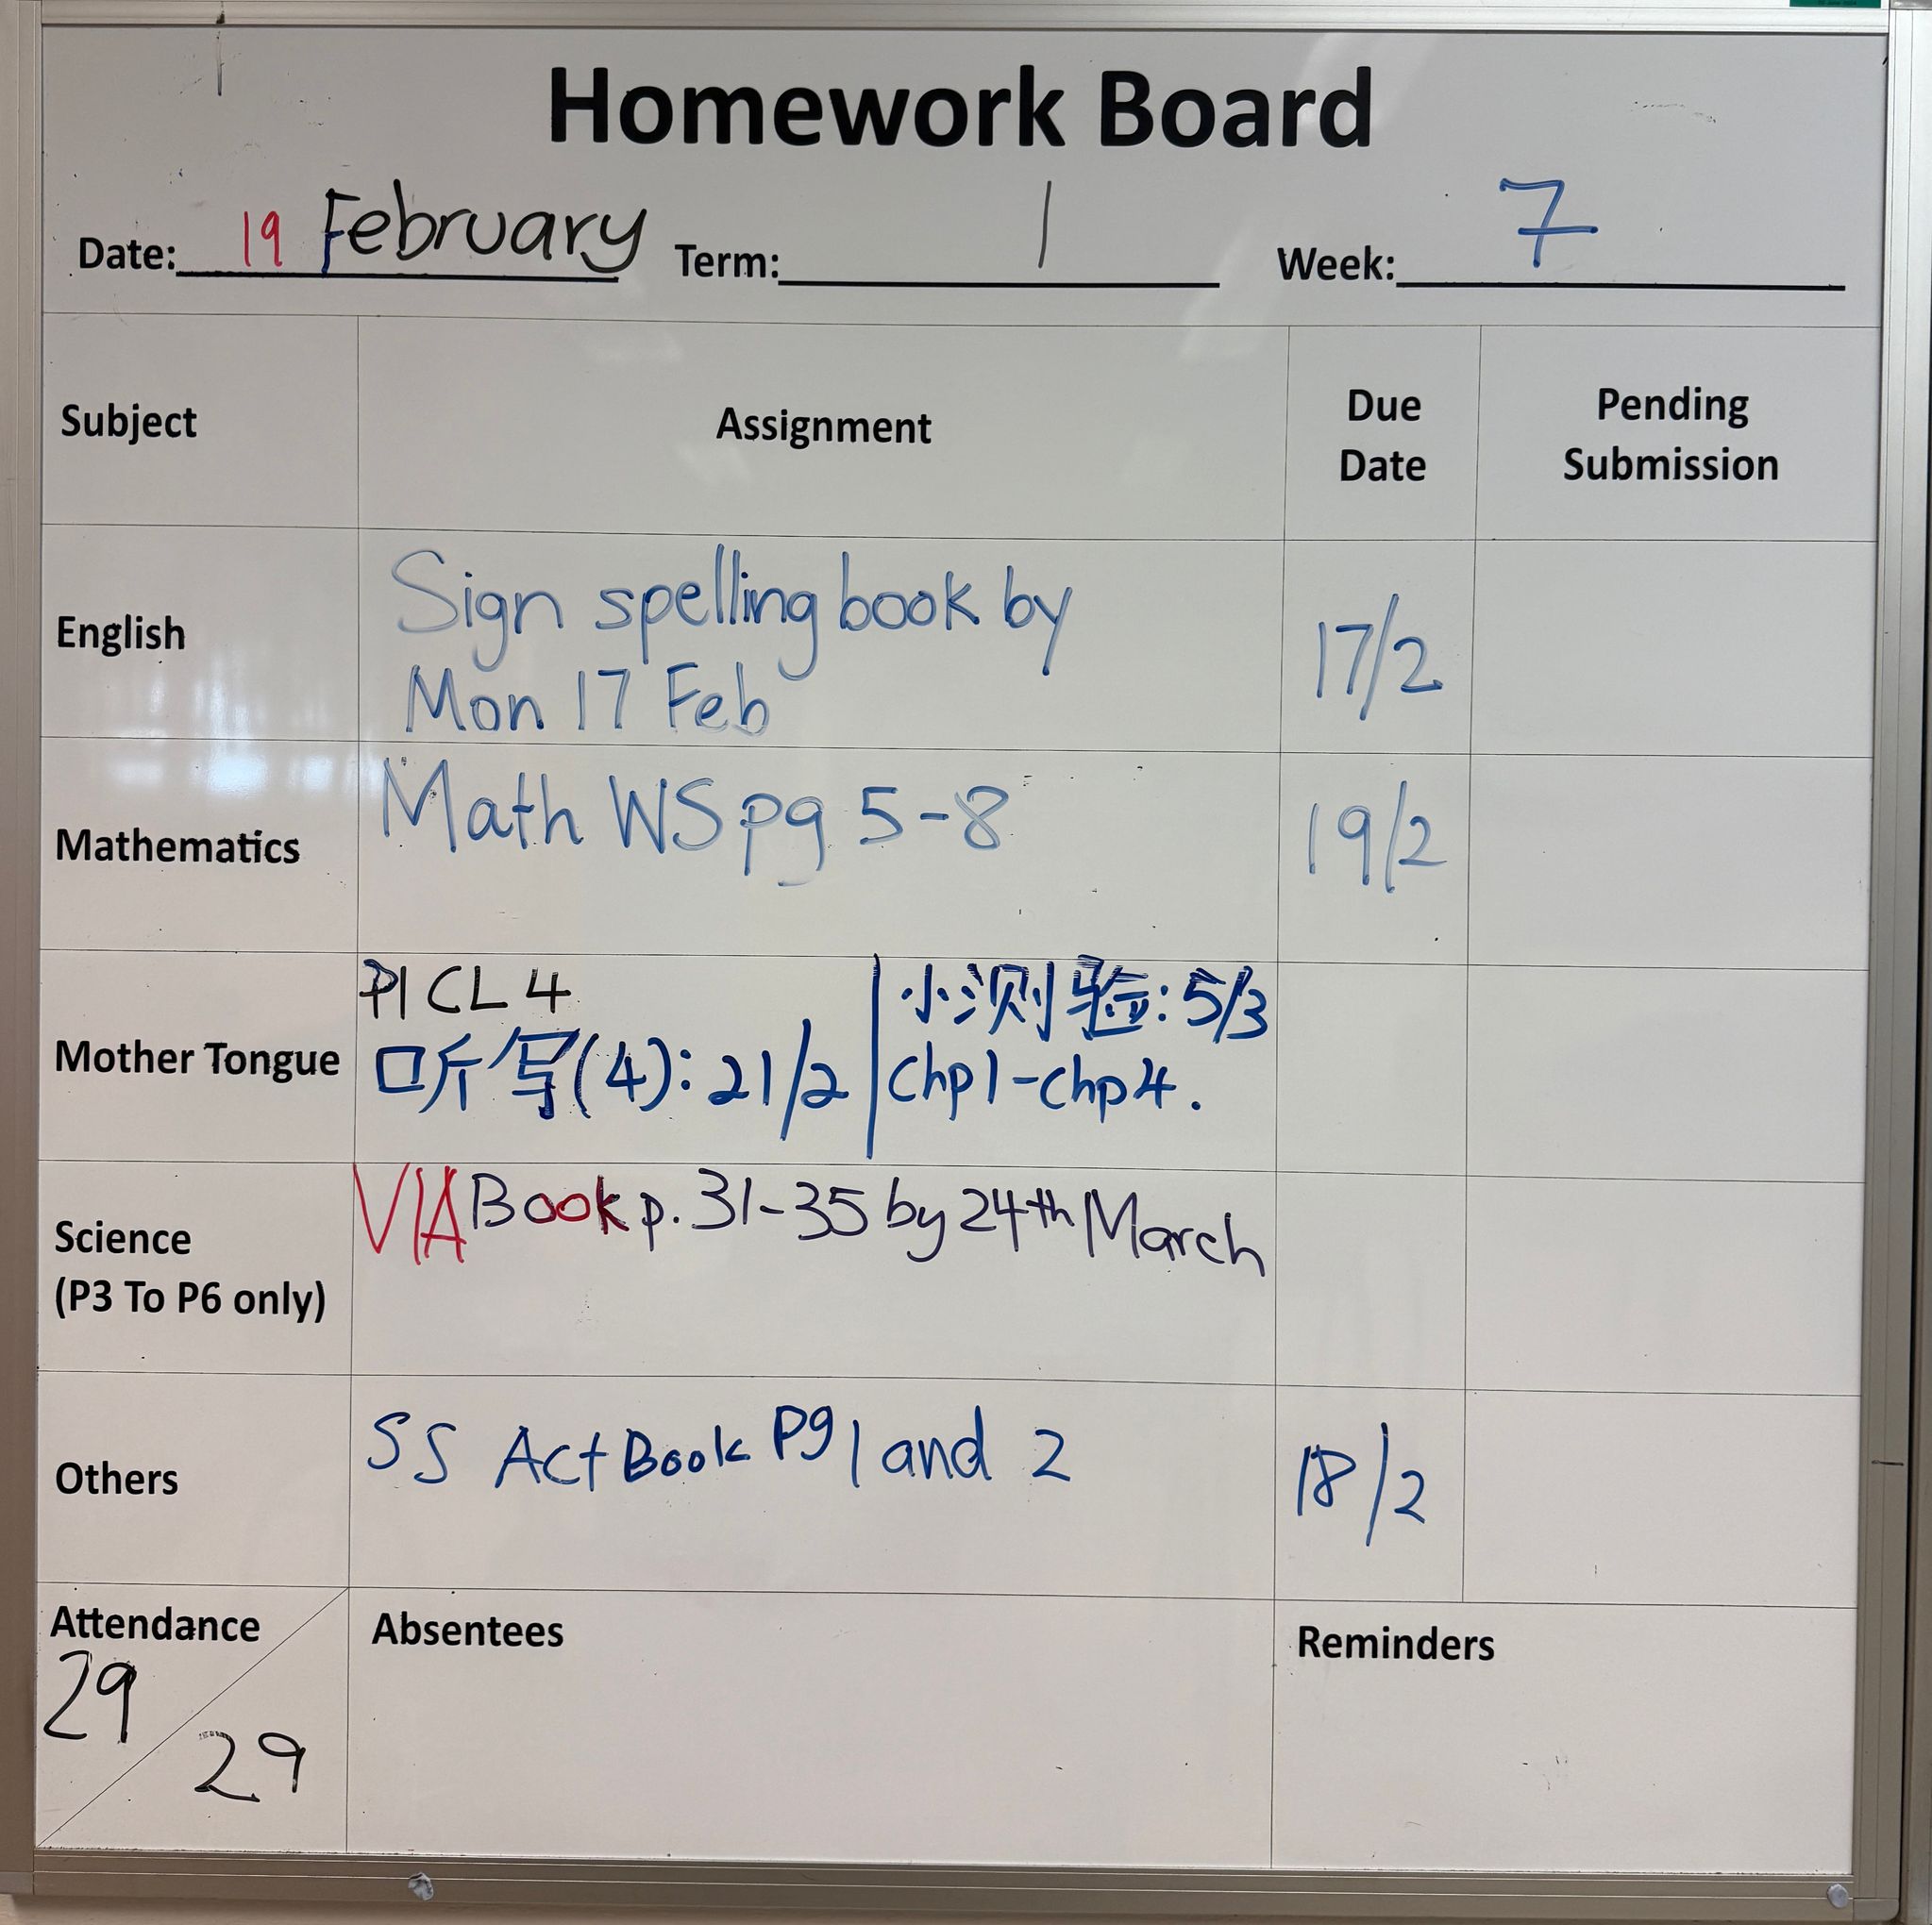 Homework Board
Date: 19 February Term: 1 Week: 7
Subject Assignment Due Date Pending Submission
English
Sign spelling book by
Mon 17 Feb
17/2
Mathematics
Math WS pg 5-8
19/2
Mother Tongue
P1 CL 4
听写(4): 21/2
小测验: 5/3
Chp1-Chp4.
Science
(P3 To P6 only)
VIA Book p. 31-35 by 24th March
Others
SS Act Book Pg 1 and 2
18/2
Attendance
29
29
Absentees
Reminders